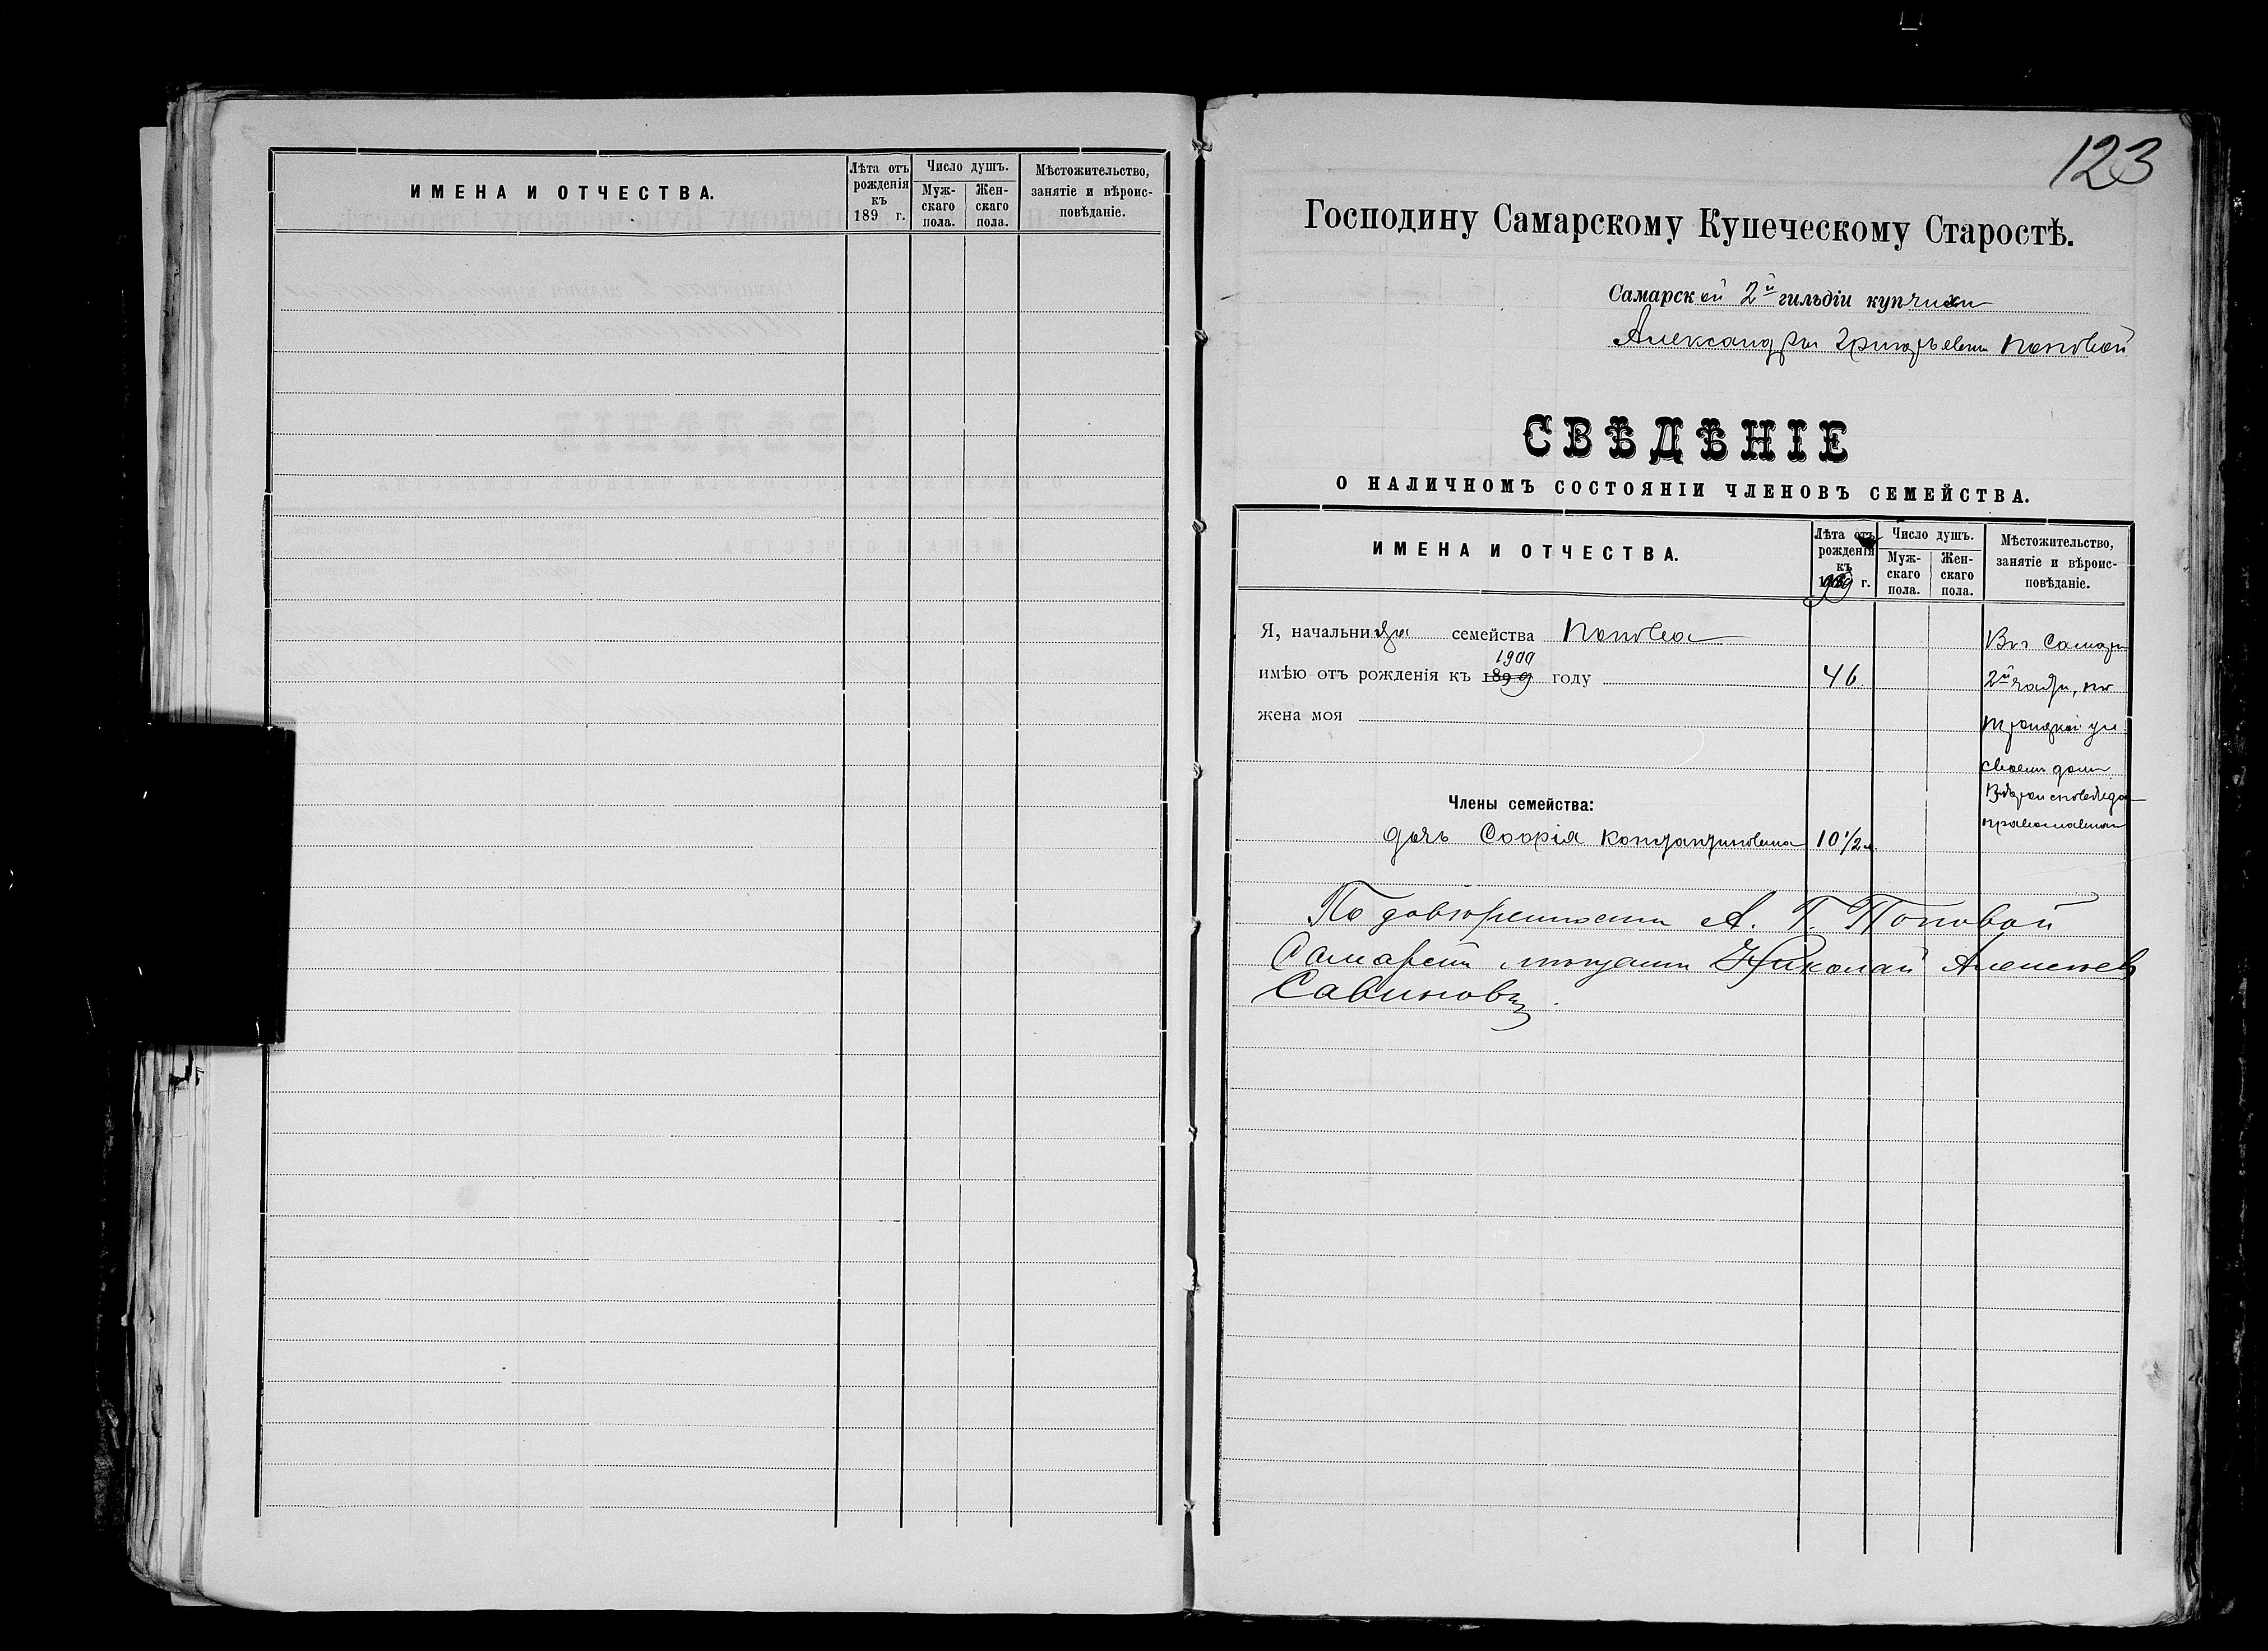 ИМЕНА И ОТЧЕСТВА.
Лѣта отъ
рожденія
къ
189 г.
Число душъ.
Муж-
скаго
пола.
Жен-
скаго
пола.
Мѣстожительство,
занятіе и вѣроис-
повѣданіе.
123
Господину Самарскому Купеческому Старостѣ.
Самарской 2й гильдіи купчихи
Александры Григорьевны Поповой
СВѢДѢНІЕ
О НАЛИЧНОМЪ СОСТОЯНІИ ЧЛЕНОВЪ СЕМЕЙСТВА.
ИМЕНА И ОТЧЕСТВА.
Лѣта отъ
рожденія
къ
г.
Число душъ.
Муж-
скаго
пола.
Жен-
скаго
пола.
Мѣстожительство,
занятіе и вѣроис-
повѣданіе.
Я, начальни семейства Попова Въ Самарѣ
1900
имѣю отъ рожденія къ 1899 году 46 2й части, по
жена моя Троицкой ул
своемъ домѣ
Члены семейства:
дочь Софія Константиновна 10 1/2 л.
По довѣренности А. Г. Поповой
Самарскій мѣщанинъ Николай Алексѣевъ
Савиновъ.